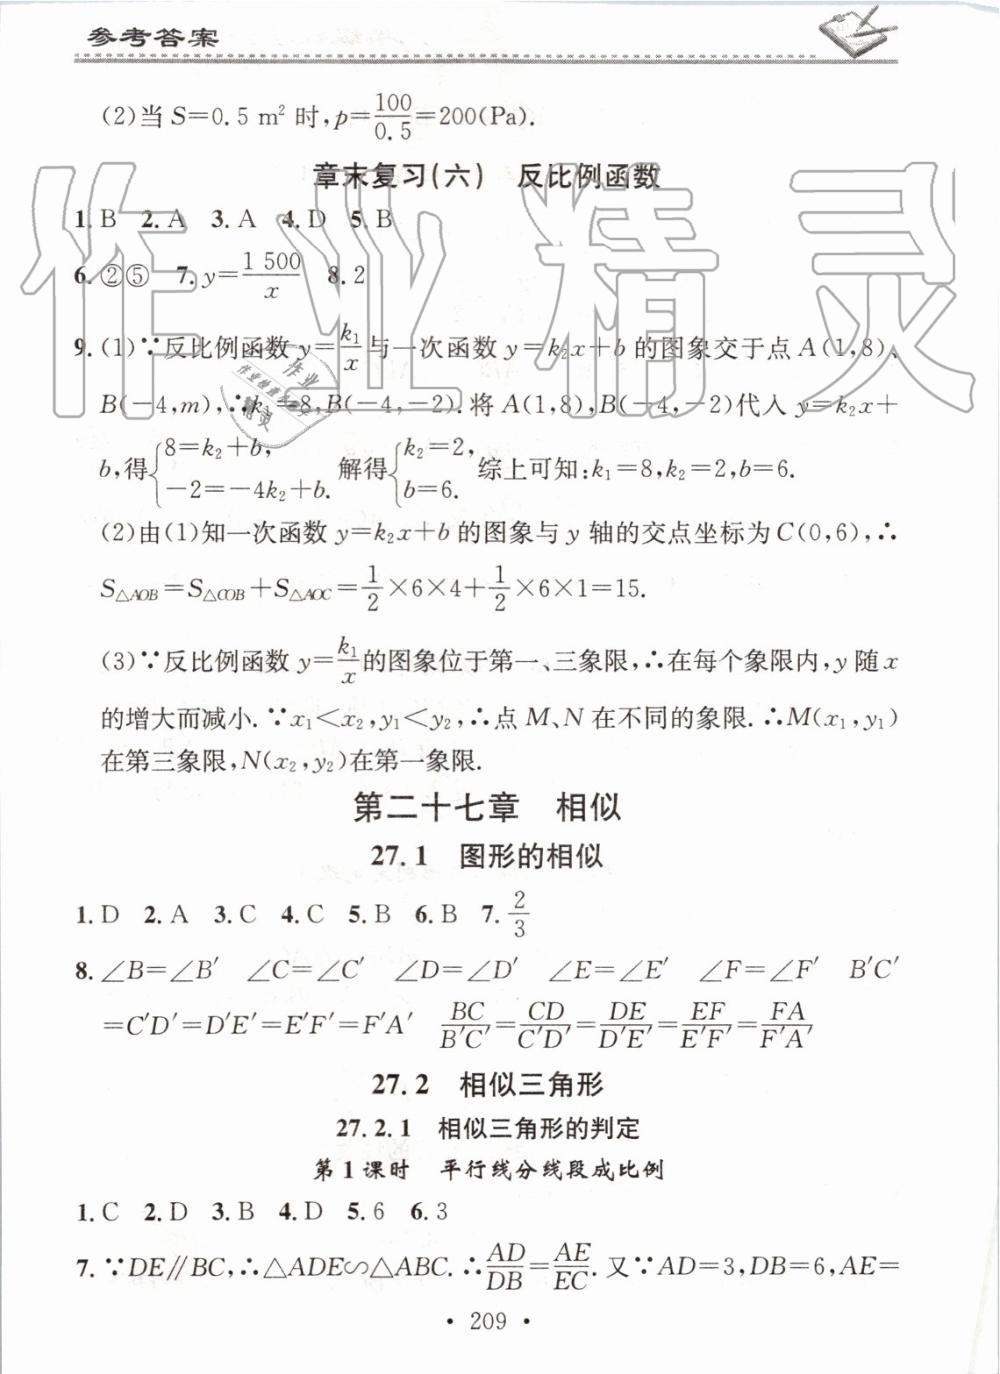 参考答案
(2)当 S=0.5 m² 时,p=100/0.5=200(Pa).
章末复习(六) 反比例函数
1.B 2.A 3.A 4.D 5.B
6.②⑤ 7.y=1 500/x 8.2
9.(1)∵反比例函数 y=k₁/x 与一次函数 y=k₂x+b 的图象交于点 A(1,8)、
B(-4,m),∴k₁=8,B(-4,-2).将 A(1,8),B(-4,-2)代入 y=k₂x+
b,得{8=k₂+b, -2=-4k₂+b. 解得{k₂=2, b=6. 综上可知:k₁=8,k₂=2,b=6.
(2)由(1)知一次函数 y=k₂x+b 的图象与 y 轴的交点坐标为 C(0,6),∴
S△AOB=S△COB+S△AOC=1/2×6×4+1/2×6×1=15.
(3)∵反比例函数 y=k₁/x的图象位于第一、三象限,∴在每个象限内,y 随 x
的增大而减小.∵x₁<x₂,y₁<y₂,∴点 M、N 在不同的象限.∴M(x₁,y₁)
在第三象限,N(x₂,y₂)在第一象限.
第二十七章 相似
27.1 图形的相似
1.D 2.A 3.C 4.C 5.B 6.B 7.2/3
8.∠B=∠B′ ∠C=∠C′ ∠D=∠D′ ∠E=∠E′ ∠F=∠F′ B′C′
=C′D′=D′E′=E′F′=F′A′ BC/B′C′=CD/C′D′=DE/D′E′=EF/E′F′=FA/F′A′
27.2 相似三角形
27.2.1 相似三角形的判定
第1课时 平行线分线段成比例
1.C 2.D 3.B 4.D 5.6 6.3
7.∵DE∥BC,∴△ADE∽△ABC.∴AD/DB=AE/EC.又∵AD=3,DB=6,AE=
·209·
作业精灵